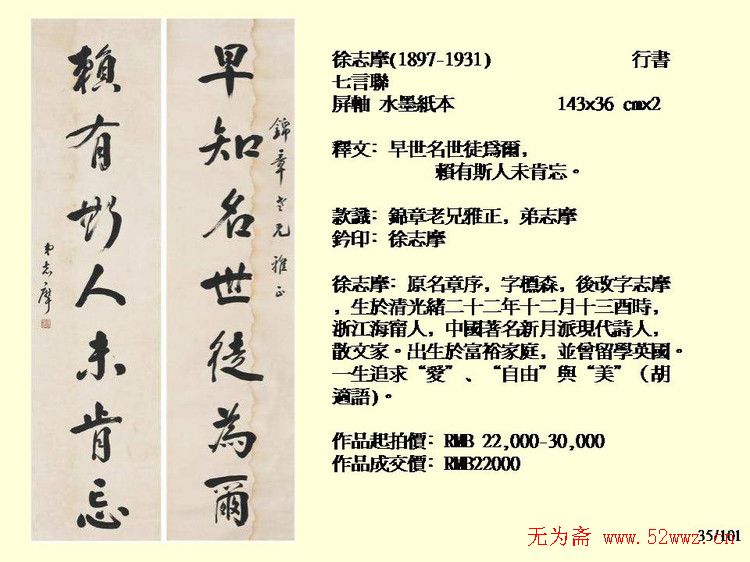 早知名世徒為爾
錦章老兄雅正
賴有斯人未肯忘
弟志摩
徐志摩(1897-1931) 行書
七言聯
屏軸 水墨紙本 143x36 cmx2
釋文: 早世名世徒爲爾,
賴有斯人未肯忘。
款識: 錦章老兄雅正, 弟志摩
鈐印: 徐志摩
徐志摩: 原名章序, 字槱森, 後改字志摩
, 生於清光緒二十二年十二月十三酉時,
浙江海甯人, 中國著名新月派現代詩人,
散文家。出生於富裕家庭, 並曾留學英國。
一生追求“愛”、“自由”與“美”(胡
適語)。
作品起拍價: RMB 22,000-30,000
作品成交價: RMB22000
35/101
无为斋 www.52wwz.cn